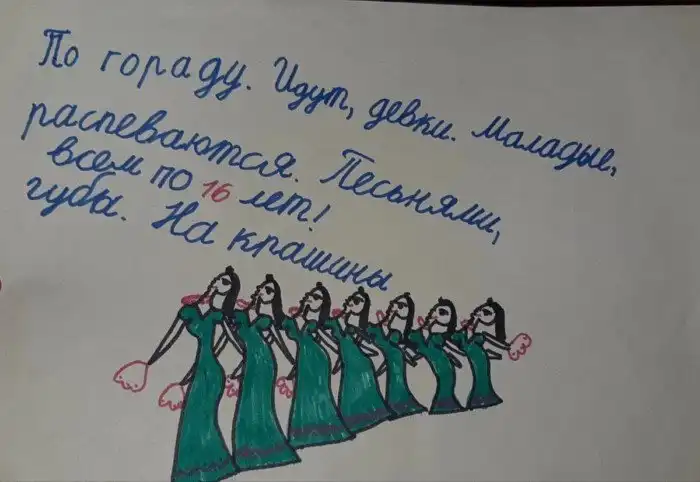 По гораду. Идут, девки. Маладые,
распеваются. Песьнями,
всем по 16 лет!
губы. На крашины